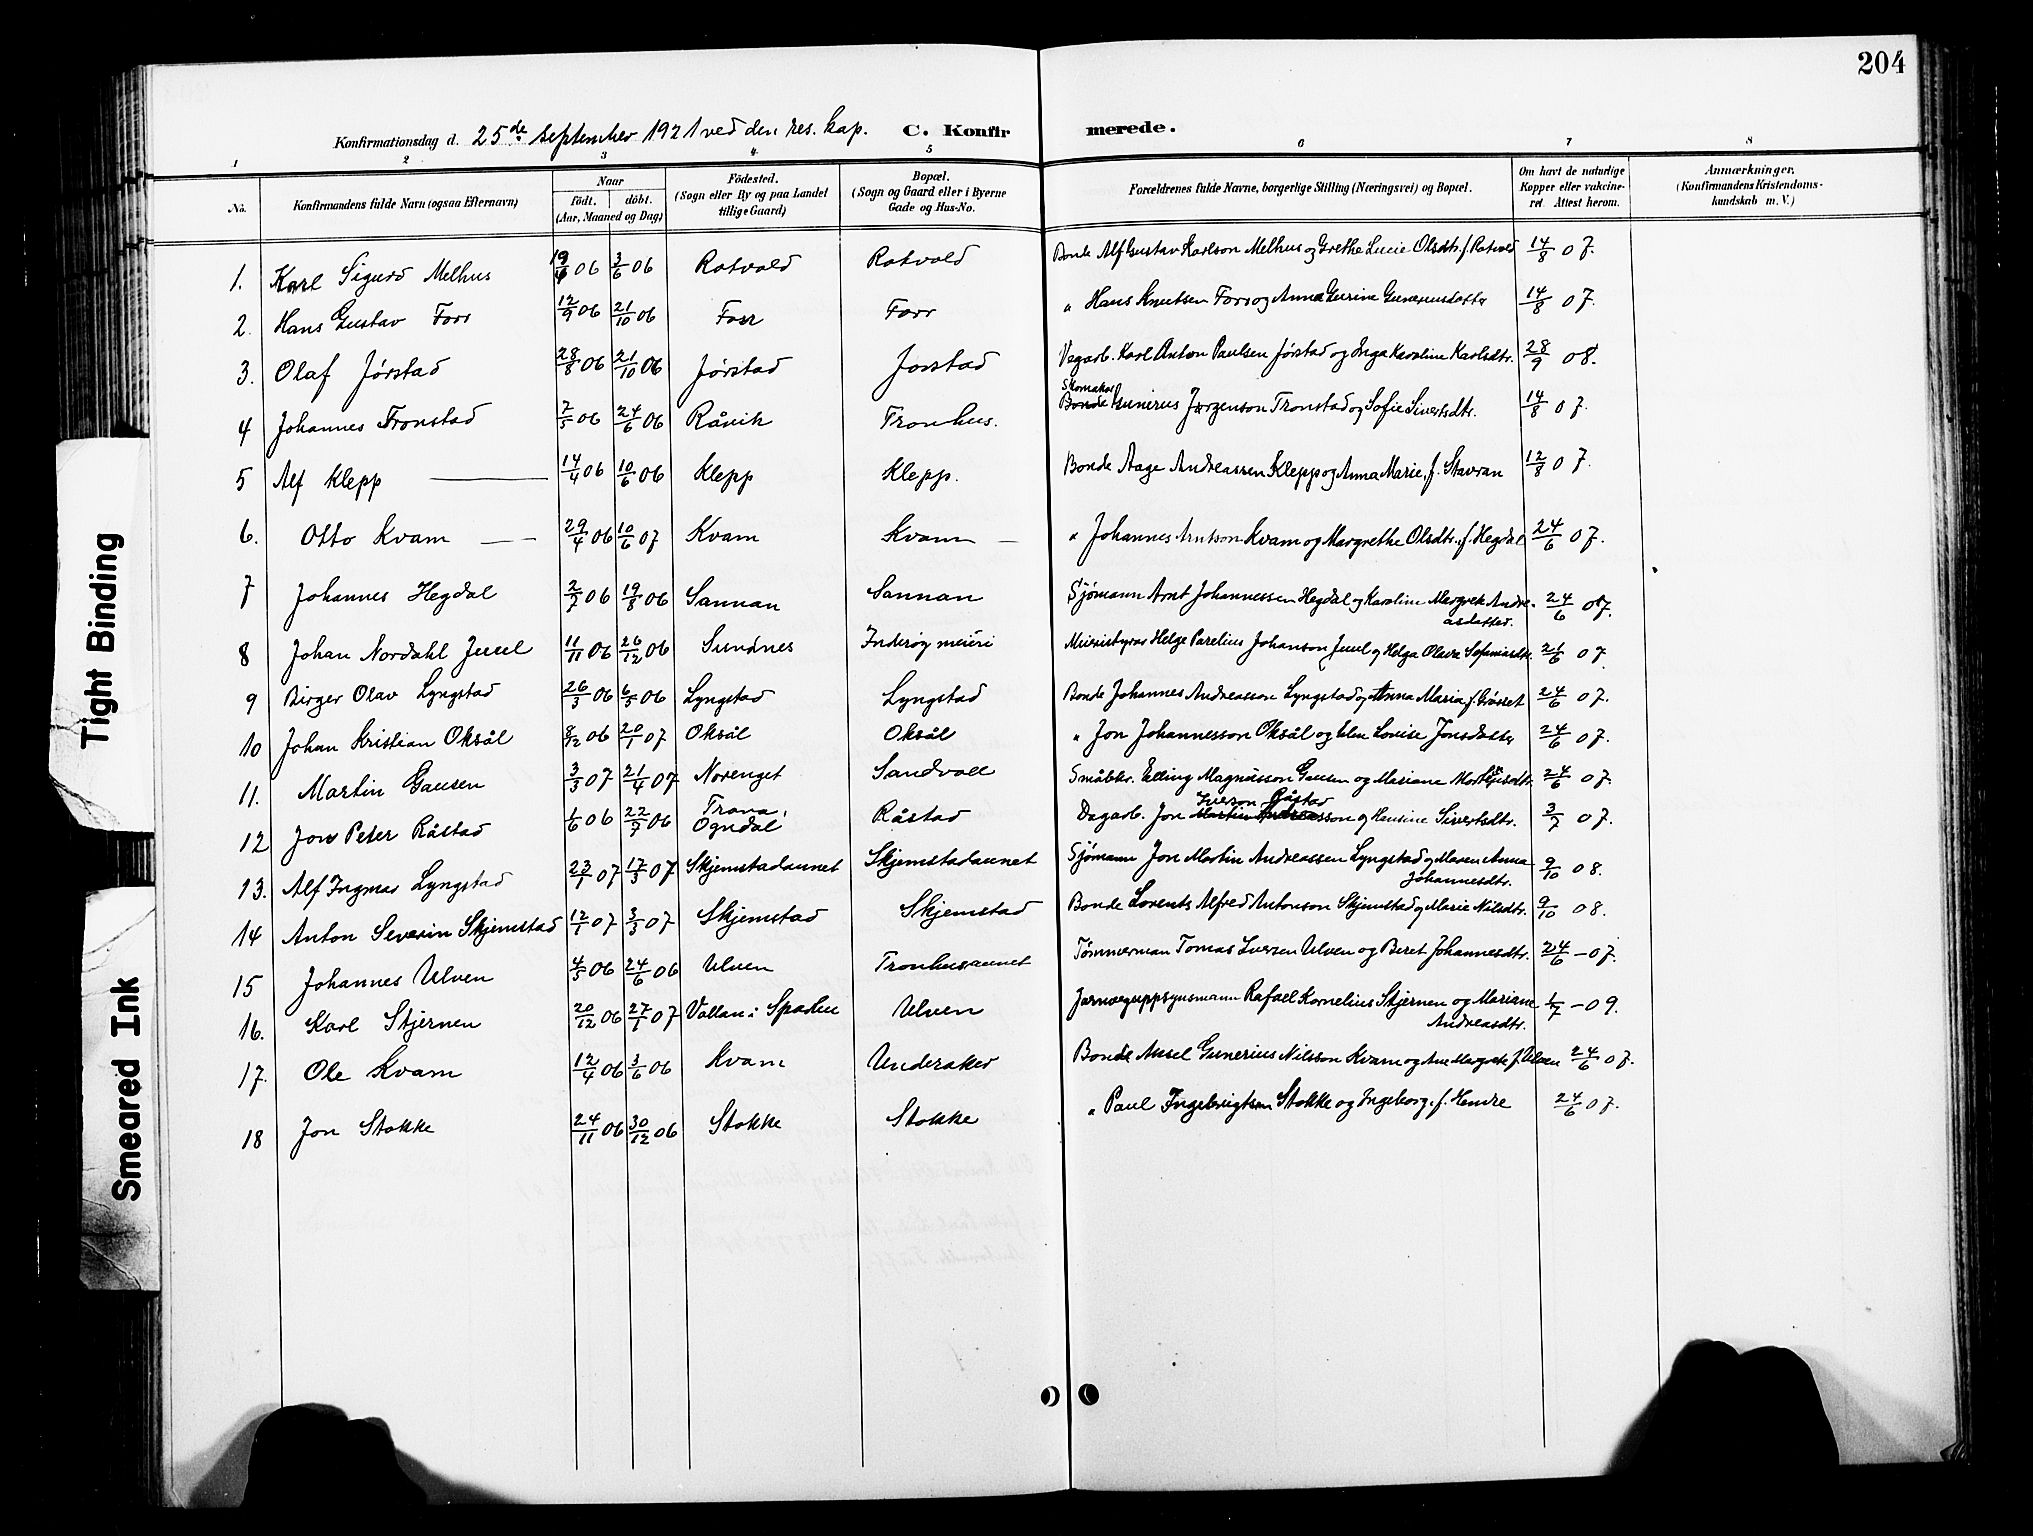 204
Konfirmationsdag d. 25de september 1921 ved den res. kap. C. Konfirmerede.
1 2 3 4 5 6 7 8
No. Konfirmandens fulde Navn (ogsaa Efternavn) Naar födt. döbt. (Aar, Maaned og Dag) Födested. (Sogn eller By og paa Landet tillige Gaard) Bopæl. (Sogn og Gaard eller i Byerne Gade og Hus-No. Forældrenes fulde Navne, borgerlige Stilling (Næringsvei) og Bopæl. Om havt de naturlige Kopper eller vakcineret. Attest herom. Anmærkninger. (Konfirmandens Kristendomskundskab m. V.)
1. Karl Sigurd Melhus 19/4 06 3/6 06 Rotvold Rotvold Bonde Alf Gustav Karlson Melhus og Grethe Lucie Olsdtr. f. Rotvold 14/8 07.
2. Hans Gustav Forr 12/9 06 21/10 06 Forr Forr " Hans Knutsen Forr og Anna Gurine Gunerusdatter 14/8 07.
3. Olaf Jørstad 28/8 06 21/10 06 Jørstad Jørstad Vegarb. Karl Anton Paulsen Jørstad og Inga Karoline Karlsdtr. 28/9 08.
4 Johannes Tronstad 7/5 06 24/6 06 Råvik Tronhus. Skomaker Bonde Gunerus Jørgenson Tronstad og Sofie Sivertsdtr. 14/8 07.
5 Alf Klepp 14/4 06 10/6 06 Klepp Klepp. Bonde Aage Andreassen Klepp og Anna Marie, f. Stavran 12/8 07.
6. Otto Kvam 29/4 06 10/6 07 Kvam Kvam " Johannes Arntson Kvam og Margrethe Olsdtr. f. Hegdal 24/6 07.
7 Johannes Hegdal 2/7 06 19/8 06 Sannan Sannan Sjømann Arnt Johannessen Hegdal og Karoline Margrete Andreasdatter. 24/6 07.
8 Johan Nordahl Juul 11/11 06 26/12 06 Sundnes Inderøy meieri Meieristyrer Helge Parelius Johanson Juul og Helga Olava 24/6 07.
9 Birger Olav Lyngstad 26/3 06 6/5 06 Lyngstad Lyngstad Bonde Johannes Andreasson Lyngstad og Anna Maria f. 24/6 07.
10 Johan Kristian Oksål 8/12 06 20/1 07 Oksål Oksål " Jon Johannesson Oksål og Elen Lovise Jonsdatter 24/6 07.
11. Martin Gausen 3/3 07 21/4 07 Norenget Sandvoll Småbkr. Elling Magnusson Gausen og Mariane 24/6 07.
12 Jon Peter Råstad 1/6 06 22/7 06 Trana, Ogndal Råstad Dagarb. Jon Iverson Råstad Martin Andreasson og Hansine Sivertsdtr. 3/7 07.
13. Alf Ingmar Lyngstad 23/1 07 17/3 07 Skjemstadaunet Skjemstadaunet Sjømann Jon Martin Andreassen Lyngstad og Maren Anna Johannesdtr. 9/10 08.
14 Anton Severin Skjemstad 12/1 07 3/3 07 Skjemstad Skjemstad Bonde Lorents Alfred Antonson Skjemstad og Marie Nilsdtr. 9/10 08.
15 Johannes Ulven 4/5 06 24/6 06 Ulven Tronhusaunet Tømmerman Tomas Iversen Ulven og Beret Johannesdtr. 24/6 – 07.
16. Karl Stjernen 20/12 06 27/1 07 Vollan i Sparbu Ulven Jarnveguppsynsmann Rafael Kornelius Stjernen og Mariane Andreasdtr. 1/7 – 09.
17. Ole Kvam 12/4 06 3/6 06 Kvam Undersaker Bonde Aksel Gunerius Nilsson Kvam og Ane Margrete f. Ulven 24/6 07.
18 Jon Stokke 24/11 06 30/12 06 Stokke Stokke " Paul Ingebrigtsen Stokke og Ingeborg, f. Hemre 24/6 07.
Tight Binding
Smeared Ink